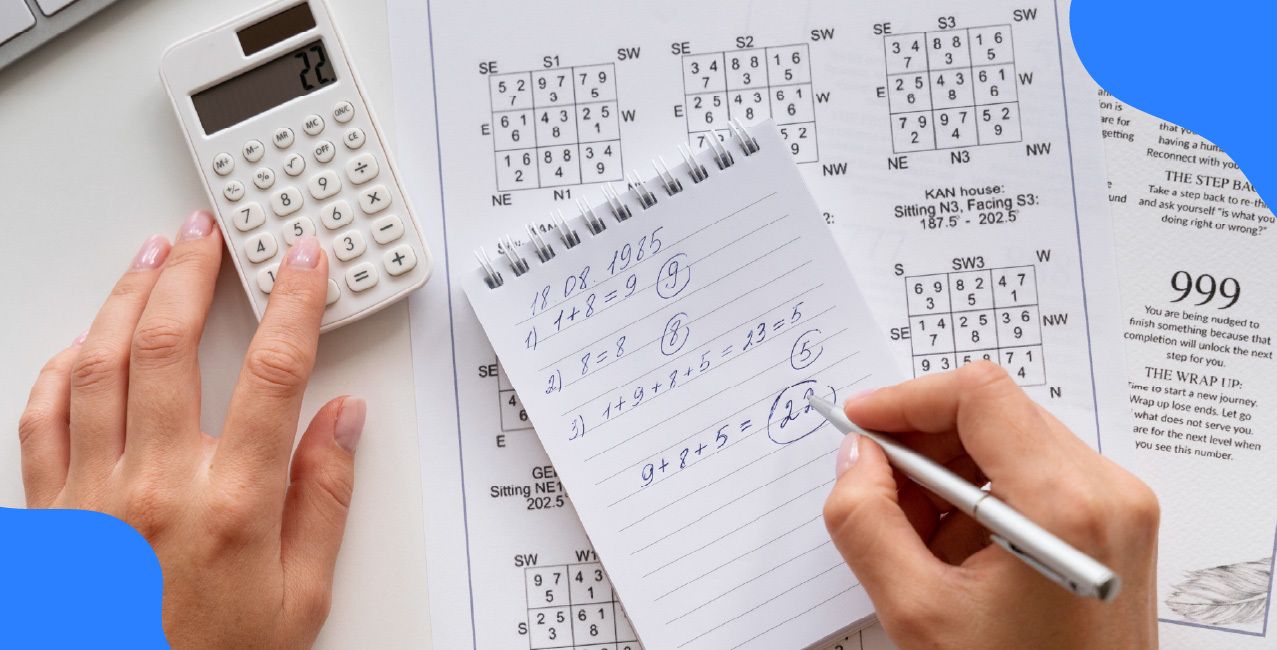 22.
M+ M- MR MC ON/C
+/- % √ OFF CE
7 8 9 ÷
4 5 6 X
1 3 −
= +
SE S1 SW
5 2 9 7 7 9
7 3 5
E 6 1 4 3 2 5 W
6 8 1
1 6 8 8 3 4
2 4 9
NE N1
SE S2 SW
3 4 8 8 1 6
7 3 5
E 2 5 4 3 6 1 W
6 8 6
7 9 5 2
9
NW
SE S3 SW
3 4 8 8 1 6
7 3 5
E 2 5 4 3 6 1 W
6 8 6
7 9 9 7 5 2
2 4 9
NE N3 NW
KAN house:
Sitting N3, Facing S3:
187.5° - 202.5°
S SW3 W
6 9 8 2 4 7
3 5 1
SE 1 4 2 5 3 6 NW
7 8 9
9 3 5 8 7 1
4
N
18.08.1985
1) 1+8=9 9
2) 8=8 8
3) 1+9+8+5=23=5
5
9+8+5= 22
SE
4
6
E
GE
Sitting NE1
202.5°
SW W1
9 7 4 3
5 1
S 2 5 6 1
3 8
on is
are for
getting
that you
having a hum
Reconnect with you
THE STEP BAC
Take a step back to re-th
and ask yourself "is what you
doing right or wrong?"
und
999
You are being nudged to
finish something because that
completion will unlock the next
step for you.
THE WRAP UP:
Time to start a new journey.
Wrap up lose ends. Let go
what does not serve you.
are for the next level when
you see this number.